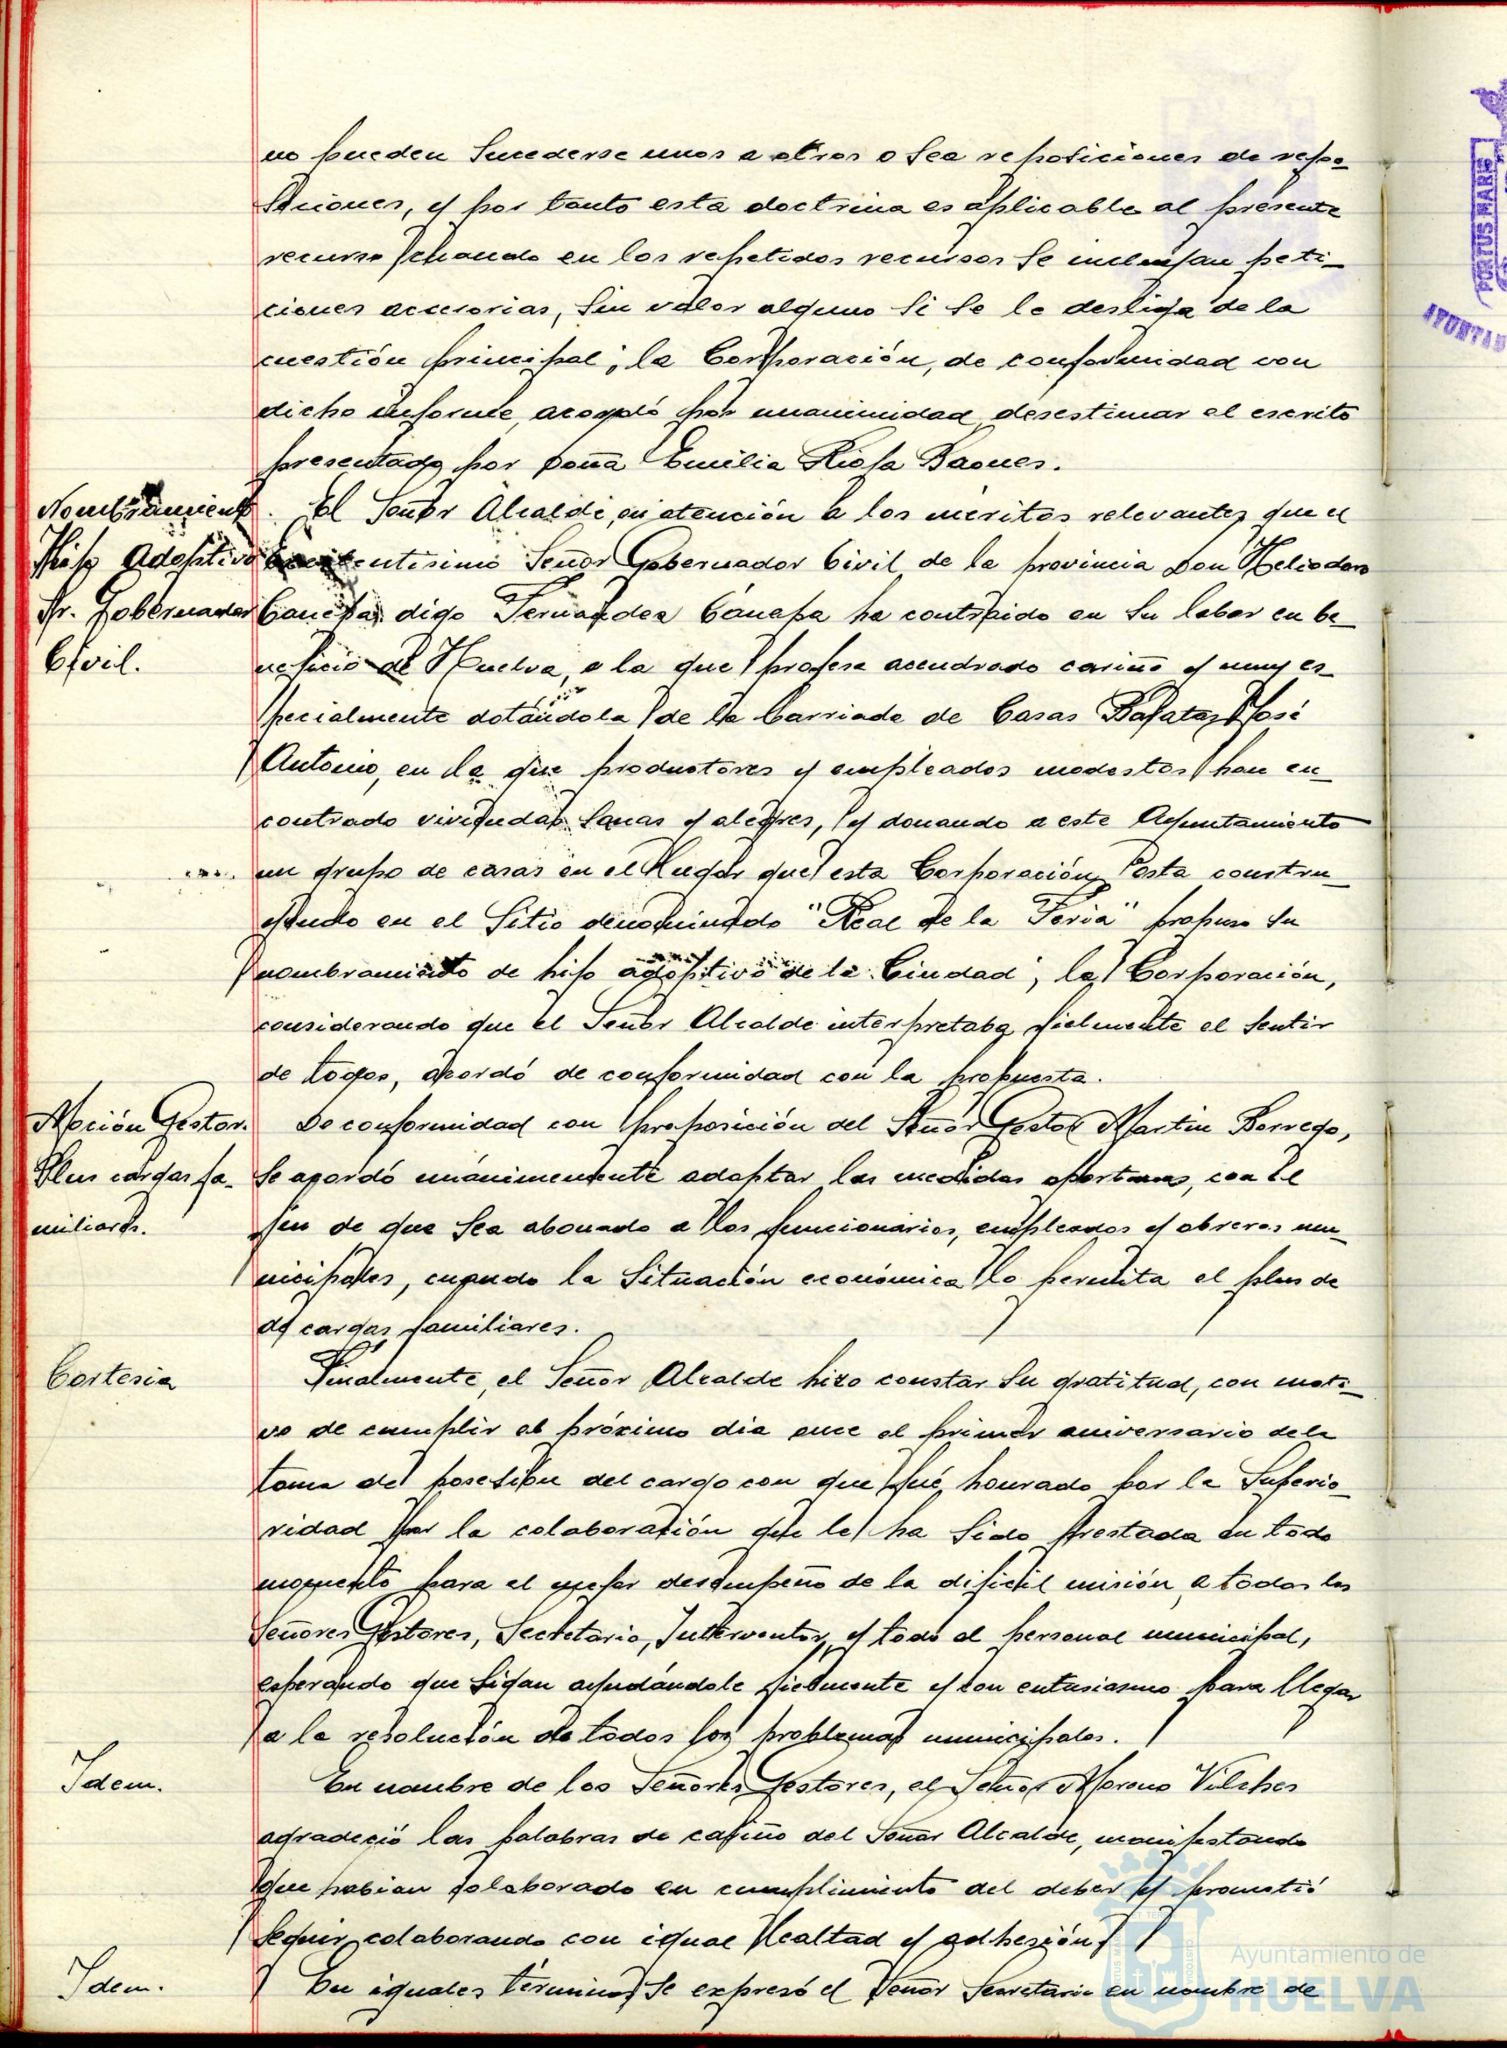 no pueden sucederse unos a otros o sea reposiciones de repo-
siciones, y por tanto esta doctrina es aplicable al presente
recurso, cuando en los repetidos recursos se incluyan peti-
ciones accesorias, sin valor alguno si se le desliga de la
cuestión principal; la Corporación, de conformidad con
dicho informe, acordó por unanimidad desestimar el escrito
presentado por Doña Emilia Rioja Baones.
Nombramiento
Hijo Adoptivo
Sr. Gobernador
Civil.
El Señor Alcalde, en atención a los méritos relevantes que el
Excelentísimo Señor Gobernador Civil de la provincia Don Heliodoro
Canepa digo Fernandez Cánepa ha contraido en su labor en be-
neficio de Huelva, a la que profesa acendrado cariño y muy es-
pecialmente dotándola de la barriada de Casas Baratas José
Antonio, en la que productores y empleados modestos han en-
contrado viviendas sanas y alegres, y donando a este Ayuntamiento
un grupo de casas en el lugar que esta Corporación esta constru-
yendo en el sitio denominado "Real de la Feria" propuso su
nombramiento de hijo adoptivo de la Ciudad; la Corporación,
considerando que el Señor Alcalde interpretaba fielmente el sentir
de todos, acordó de conformidad con la propuesta.
Moción Gestor.
Plus cargas fa-
miliares.
De conformidad con proposición del Señor Gestor Martin Borrego,
se acordó unánimemente adoptar las medidas oportunas, con el
fin de que sea abonado a los funcionarios, empleados y obreros mu-
nicipales, cuando la situación económica lo permita el plus de
de cargas familiares.
Cortesia
Finalmente, el Señor Alcalde hizo constar su gratitud, con moti-
vo de cumplir el próximo dia once el primer aniversario de la
toma de posesión del cargo con que fué honrado por la Superio-
ridad por la colaboración que le ha sido prestada en todo
momento para el mejor desempeño de la dificil misión, a todos los
Señores Gestores, Secretario, Interventor, y todo el personal municipal,
esperando que sigan ayudándole fielmente y con entusiasmo para llegar
a la resolución de todos los problemas municipales.
Idem.
En nombre de los Señores Gestores, el Señor Moreno Vilches
agradeció las palabras de cariño del Señor Alcalde, manifestando
que habian colaborado en cumplimiento del deber y prometió
seguir colaborando con igual lealtad y adhesión.
Idem.
En iguales términos se expresó el Señor Secretario en nombre de
PORTUS MARIS
AYUNTAM
Ayuntamiento de
HUELVA